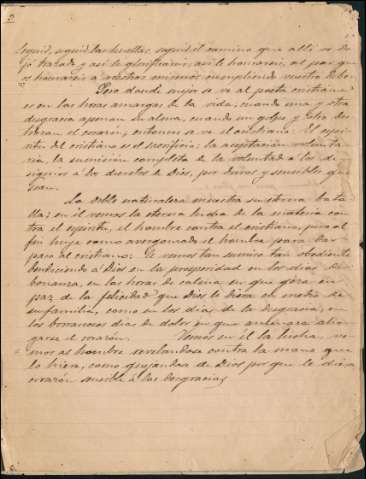 Seguid, seguid sus huellas, seguid el camino que allí os de
jó trazado y así le glorificareis, así le honrareis, al par que
os honrareis a vosotros mismos cumpliendo vuestro deber.
Pero donde mejor se ve al poeta cristiano
es en las horas amargas de la vida, cuando una y otra
desgracia apenan su alma, cuando un golpe y otro des
trozan el corazon, entonces se ve el cristiano. El espí
ritu del cristiano es el sacrificio; la aceptacion volunta
ria, la sumision completa de la voluntad a los de
signios a los decretos de Dios, por duros y sensibles que
sean.
La doble naturaleza encuentra su eterna bata
lla; en él vemos la eterna lucha de la materia con
tra el espíritu, el hombre contra el cristiano, pero al
fin huye como avergonzado el hombre para dar
paso al cristiano; Le vemos tan sumiso tan obediente
bendiciendo a Dios en la prosperidad en los dias de
bonanza, en las horas de calma en que goza en
paz de la felicidad que Dios le diera en medio de
su familia, como en los dias de la desgracia, en
los borrascosos dias de dolor en que amenaza aho
garse el corazon. Vemos en él la lucha, ve
mos al hombre revelandose contra la mano que
lo hiere, como quejandose de Dios por que le dió un
corazón sensible á las desgracias,